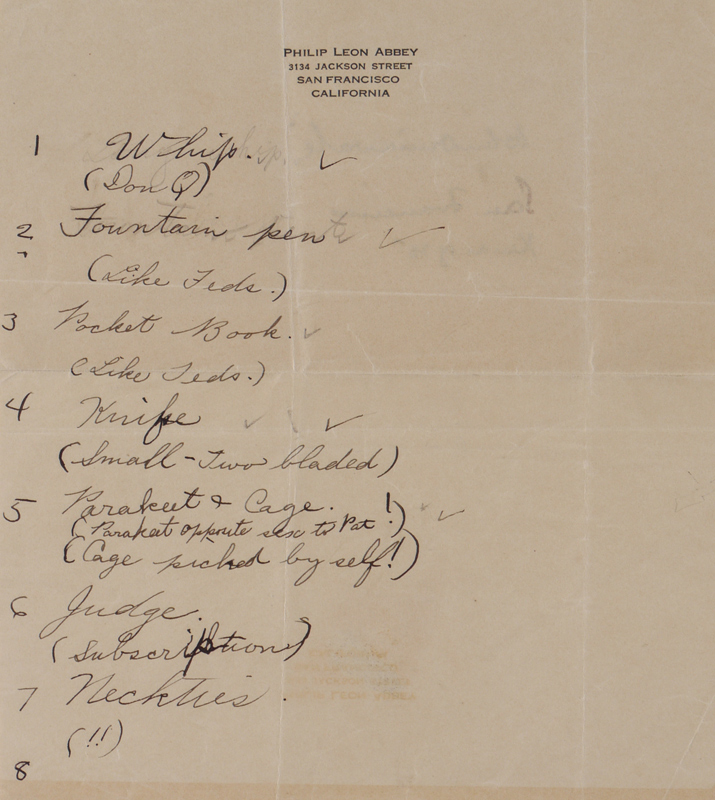 PHILIP LEON ABBEY
3134 JACKSON STREET
SAN FRANCISCO
CALIFORNIA
1 Whip. ✓
(Don Q)
2 Fountain pen ✓
(Like Teds.)
3 Pocket Book. ✓
(Like Teds.)
4 Knife ✓ ✓
(Small-two bladed)
5 Parakeet & Cage. ! ✓
(Parakeet opposite sex to Pat!)
(Cage picked by self!)
6 Judge.
(Subscription)
7 Neckties.
(!!)
8